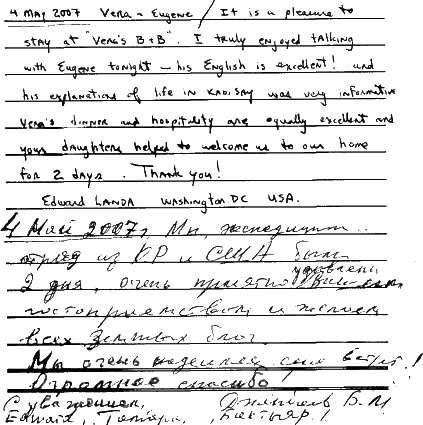 4 May 2007 Vera & Eugene / It is a pleasure to
stay at "Vera's B+B". I truly enjoyed talking
with Eugene tonight – his English is excellent! and
his explanations of life in Kadjisay was very informative
Vera's dinner and hospitality are equally excellent and
your daughters helped to welcome us to our home
for 2 days. Thank you!
Edward LANDA Washington DC USA.
4 Май 2007г, Мы, экспедицион..
отряд из КР и США были
2 дня, очень приятно
гостоприемством и желаем
всех земных благ.
Мы очень надеемся еще встреч!
Огромное спасибо!
С уважением,
Edward, Тамара, Бактыяр!